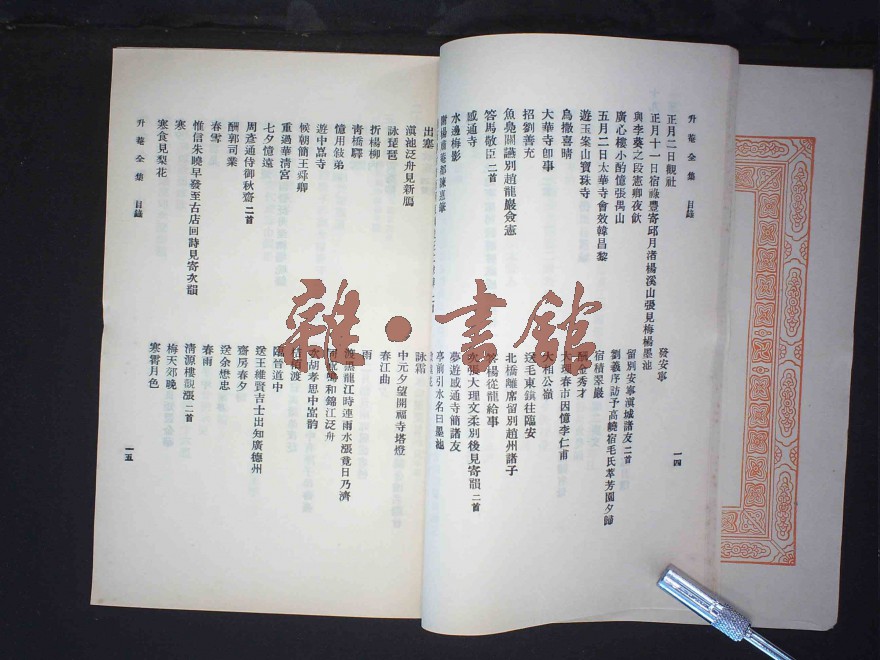 升菴全集 目錄
一四
正月二日觀社
正月十一日宿祿豐寄邱月渚楊溪山張見梅楊墨池
與李葵之段憲卿夜飲
廣心樓小酌憶張禺山
五月二日太華寺會效韓昌黎
遊玉案山寶珠寺
烏撒喜晴
大華寺卽事
招劉善充
魚鳧關讌別趙龍巖僉憲
答馬敬臣二首
感通寺
水邊梅影
發安寧
留別安寧滇城諸友二首
劉義序訪予高嶢宿毛氏萃芳園夕歸
宿積翠巖
金秀才
大理春市因憶李仁甫
大相公嶺
送毛東鎮往臨安
北橋離席留別趙州諸子
楊從龍給事
次張大理文柔別後見寄韻二首
夢遊感通寺簡諸友
亭前引水名曰墨池
升菴全集 目錄
一五
出塞
滇池泛舟見新鴈
詠琵琶
折楊柳
青橋驛
憶用敍弟
遊中嵓寺
候朝簡王舜卿
重過華清宮
七夕憶遠
周彥通侍御秋齋二首
酬郭司業
春雪
惟信朱曉早發至古店回詩見寄次韻
寒
寒食見梨花
詠霜
中元夕望開福寺塔燈
春江曲
雨
渡黑龍江時連雨水漲竟日乃濟
和錦江泛舟
次胡孝思中嵓韵
渡
臨晉道中
送王維賢吉士出知廣德州
齋房春夕
送余懋忠
春雨
清源樓觀漲二首
梅天郊晚
寒霄月色
雜·書館